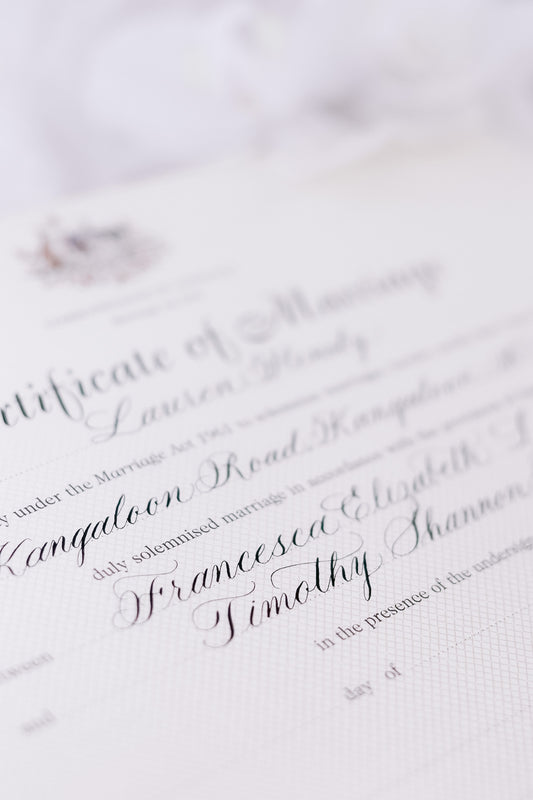 rtificate of Marriage
Lauren
y under the Marriage Act 1961 to solemnise marriages
Kangaloon Road, Kangaloon
duly solemnised marriage in accordance with the
between
Francesca Elizabeth
and
Timothy Shannon
in the presence of the undersig
day of